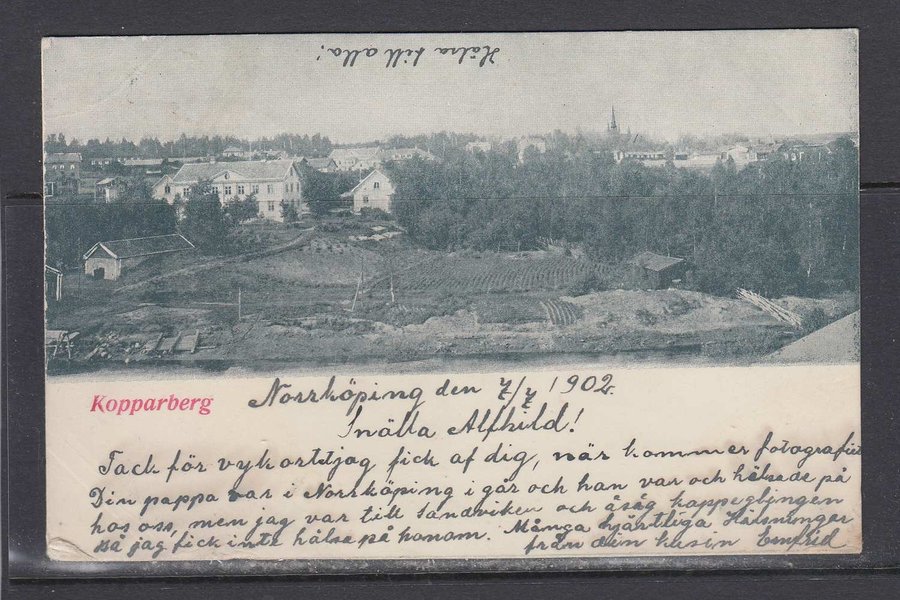 Hälsa till alla!
Kopparberg
Norrköping den 7/7 1902.
Snälla Alfhild!
Tack för vykortet jag fick af dig, när kommer fotografiet
Din pappa var i Norrköping i går och han var och hälsade på
hos oss, men jag var till Sandviken och åsåg kappseglingen
så jag fick inte hälsa på honom. Många hjärtliga Hälsningar
från din kusin